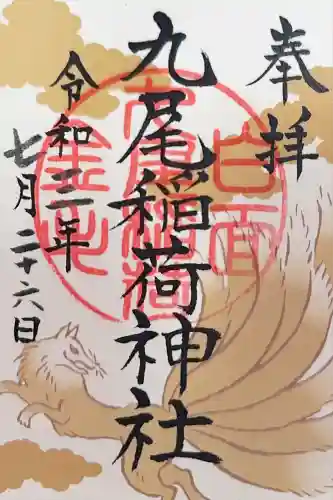 奉拝
九尾稲荷神社
令和三年
七月二十六日
白面
九尾稲荷
金毛